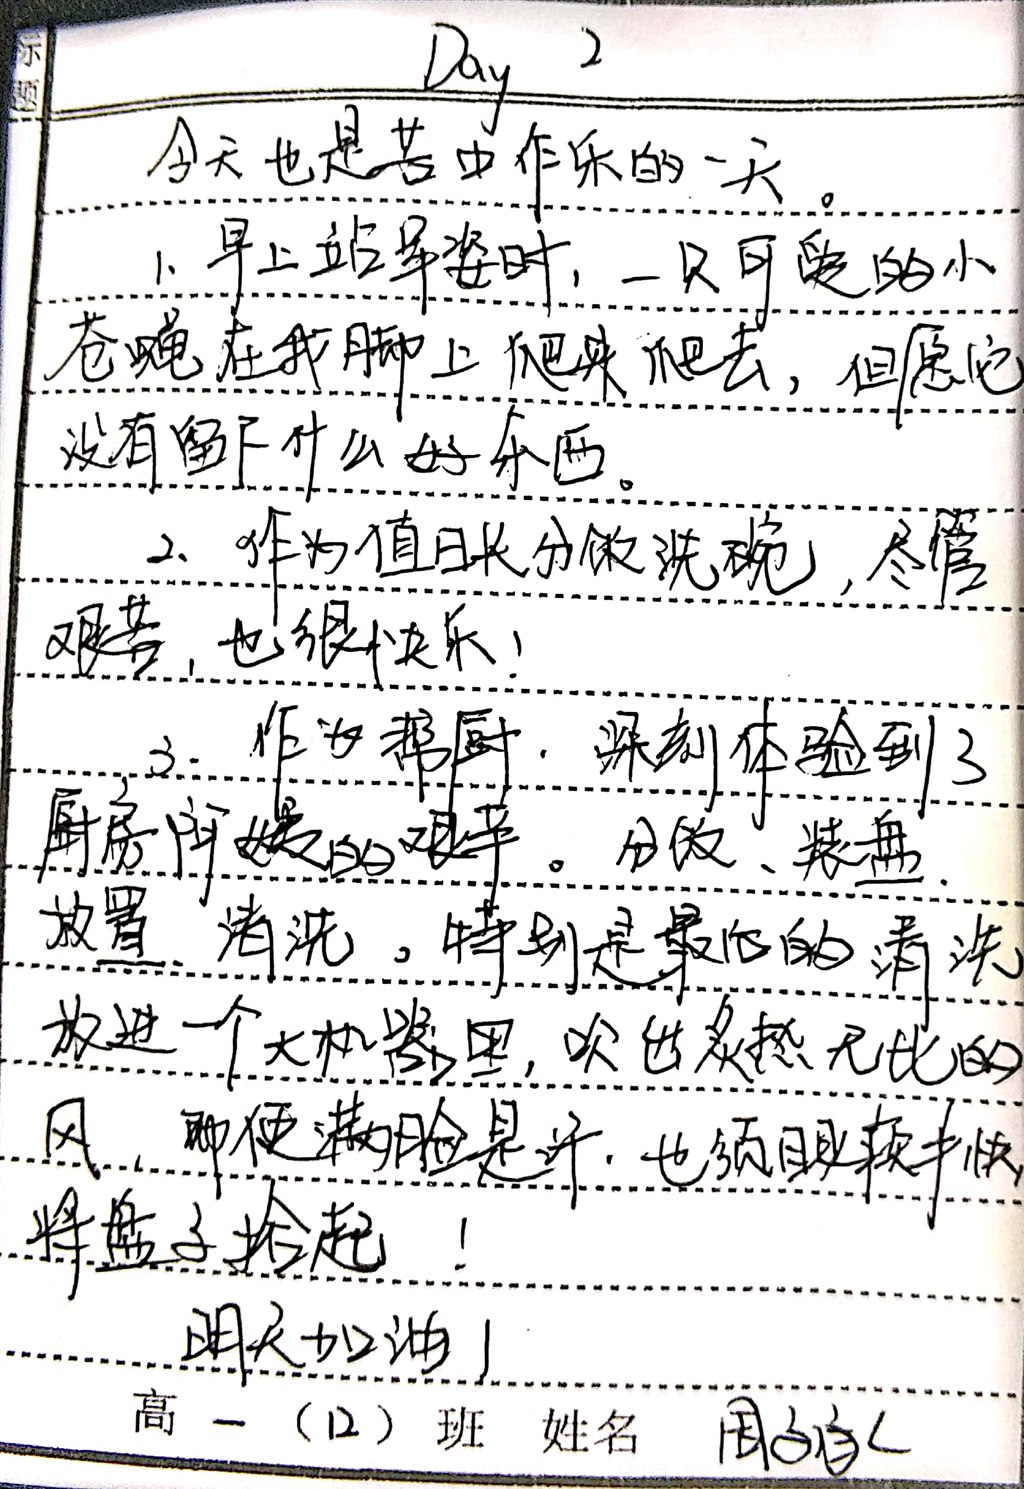 标题
Day 2
今天也是苦中作乐的一天。
1、早上站军姿时，一只可爱的小
苍蝇在我脚上爬来爬去，但愿它
没有留下什么好东西。
2、作为值日长分饭洗碗，尽管
艰苦，也很快乐！
3、作为帮厨，深刻体验到了
厨房阿姨的艰辛。分饭、装盘、
放置、清洗。特别是最后的清洗
放进一个大机器里，吹出炙热无比的
风，即便满脸是汗，也须眼疾手快，
将盘子拾起！
明天加油！
高一（12）班 姓名 周